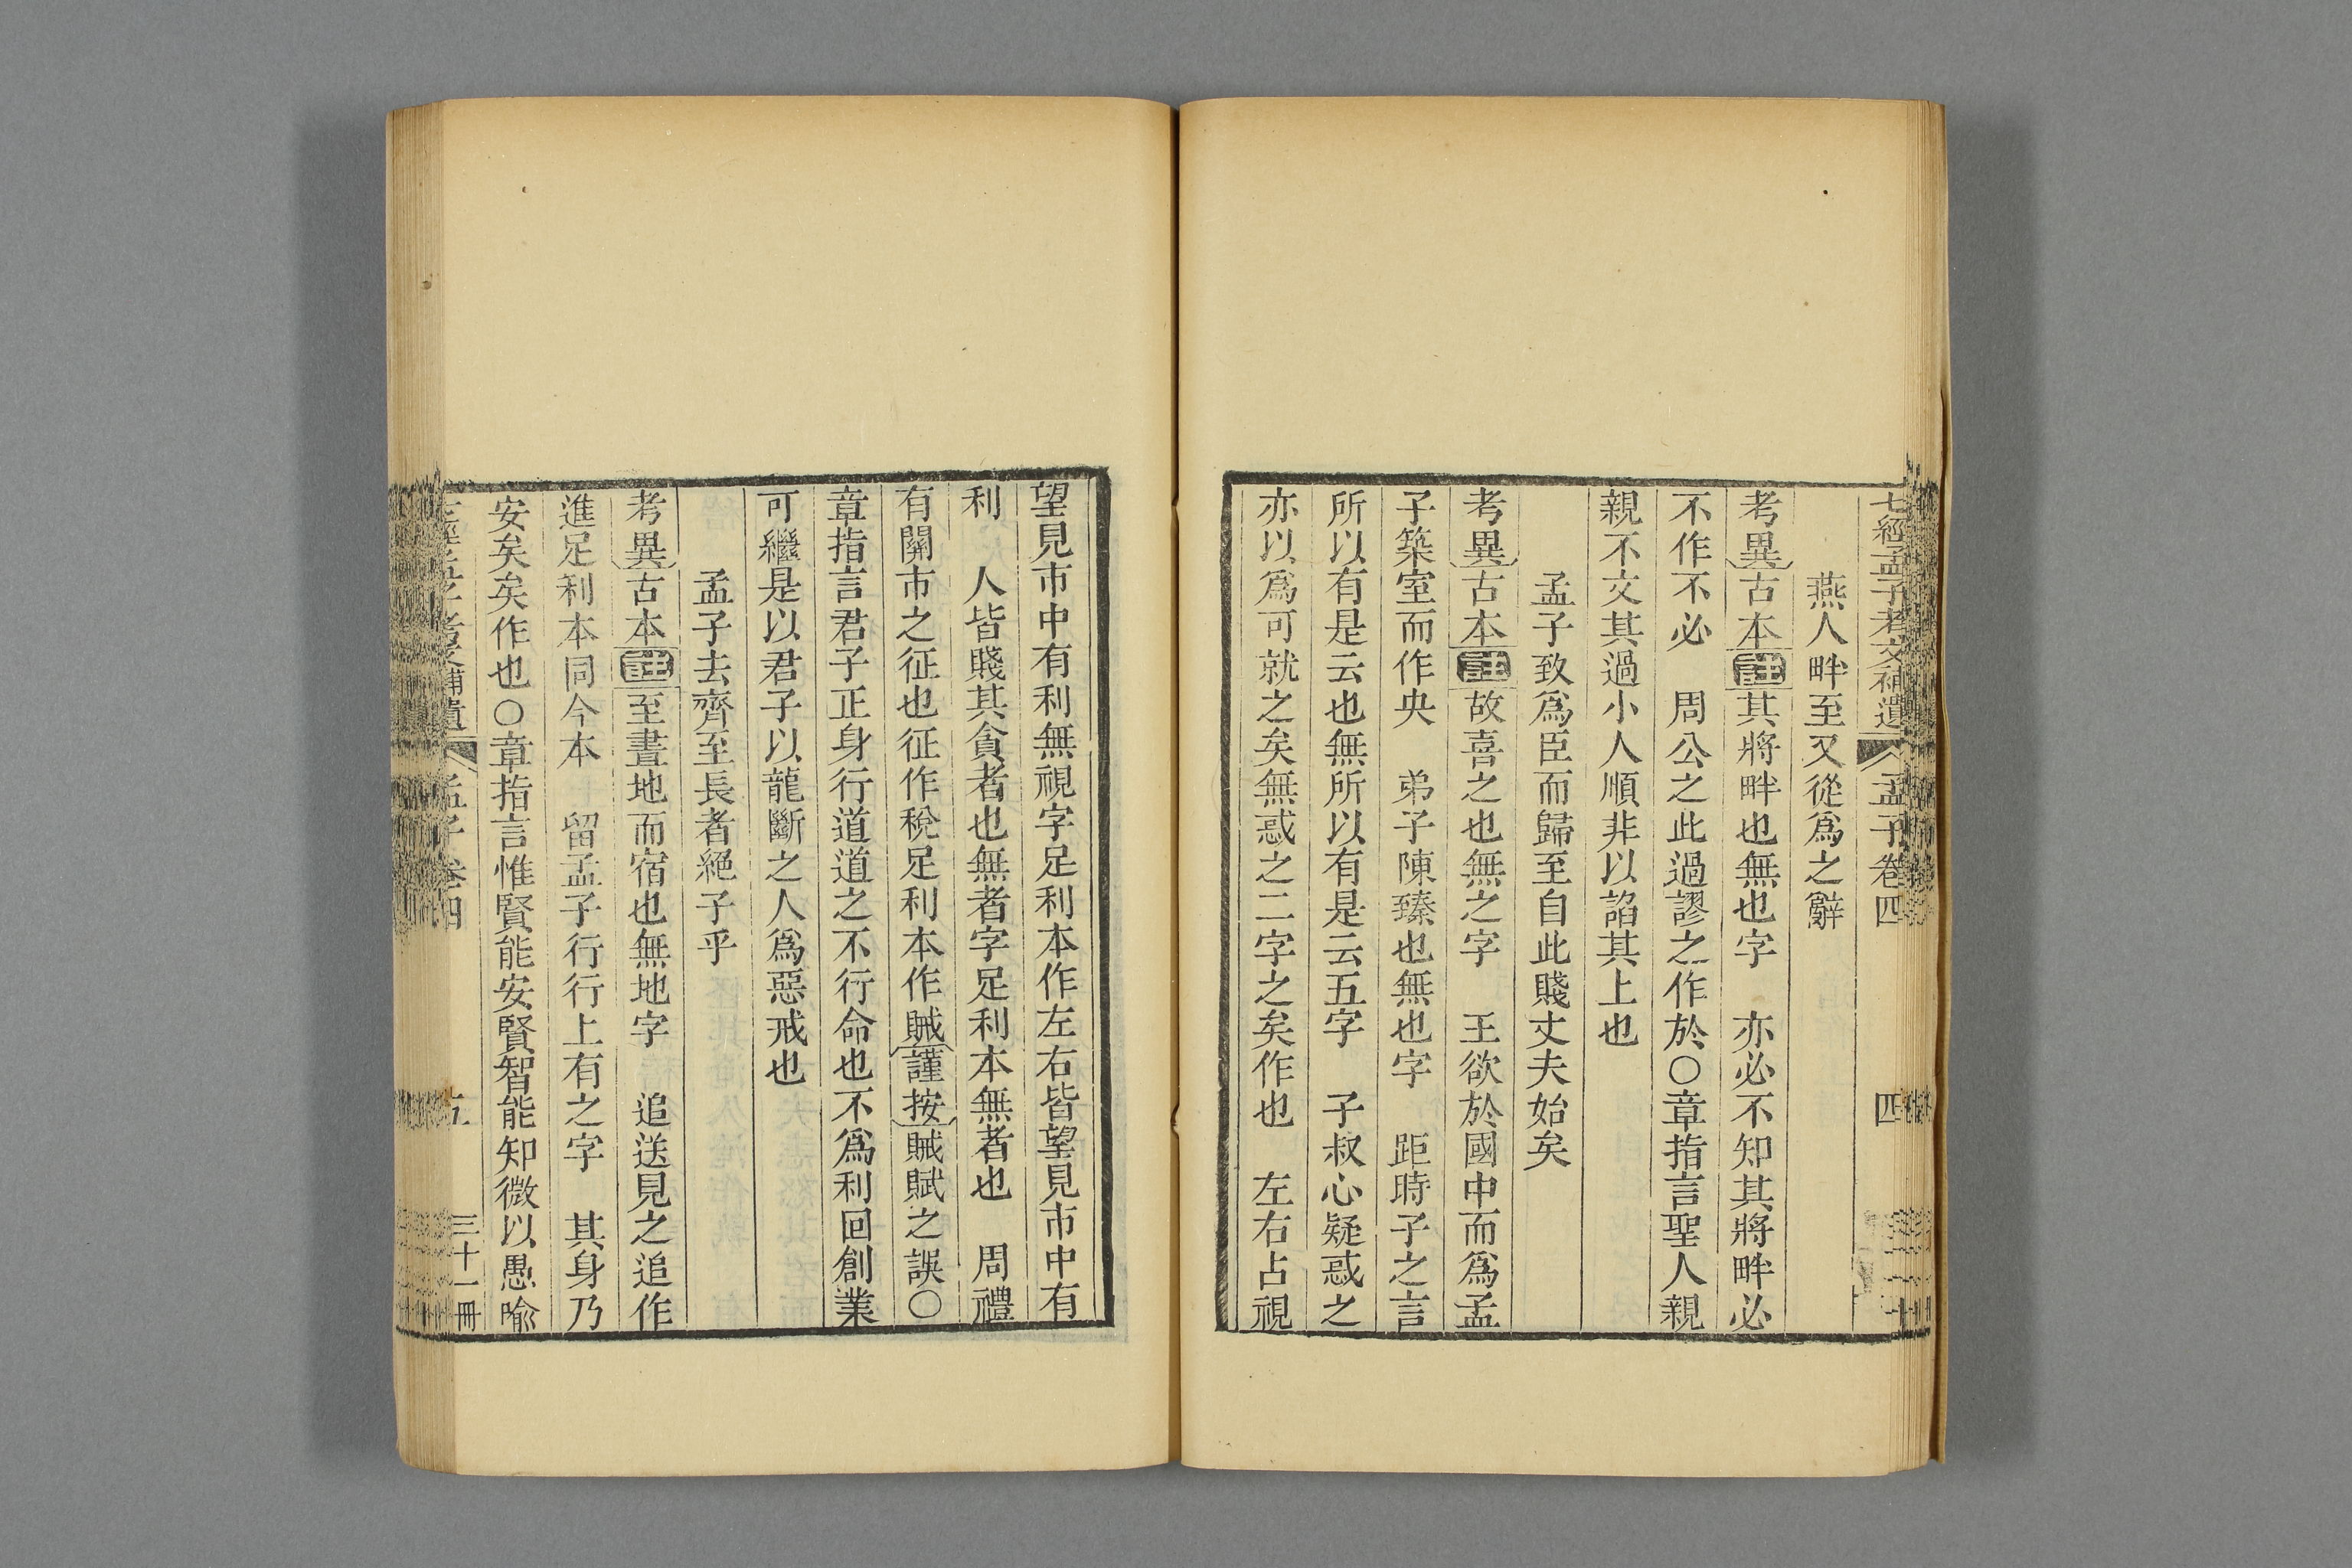 七經孟子考文補遺 孟子卷四 四
燕人畔至又從爲之辭
考異古本註其將畔也無也字 亦必不知其將畔必
不作不必 周公之此過謬之作於○章指言聖人親
親不文其過小人順非以諂其上也
孟子致爲臣而歸至自此賤丈夫始矣
考異古本註故喜之也無之字 王欲於國中而爲孟
子築室而作央 弟子陳臻也無也字 距時子之言
所以有是云也無所以有是云五字 子叔心疑惑之
亦以爲可就之矣無惑之二字之矣作也 左右占視
望見市中有利無視字足利本作左右皆望見市中有
利 人皆賤其貪者也無者字足利本無者也 周禮
有關市之征也征作稅足利本作賊謹按賊賦之誤○
章指言君子正身行道道之不行命也不爲利回創業
可繼是以君子以龍斷之人爲惡戒也
孟子去齊至長者絕子乎
考異古本註至晝地而宿也無地字 追送見之追作
進足利本同今本 留孟子行行上有之字 其身乃
安矣矣作也○章指言惟賢能安賢智能知微以愚喻
補遺 孟子卷四 五 三十一冊